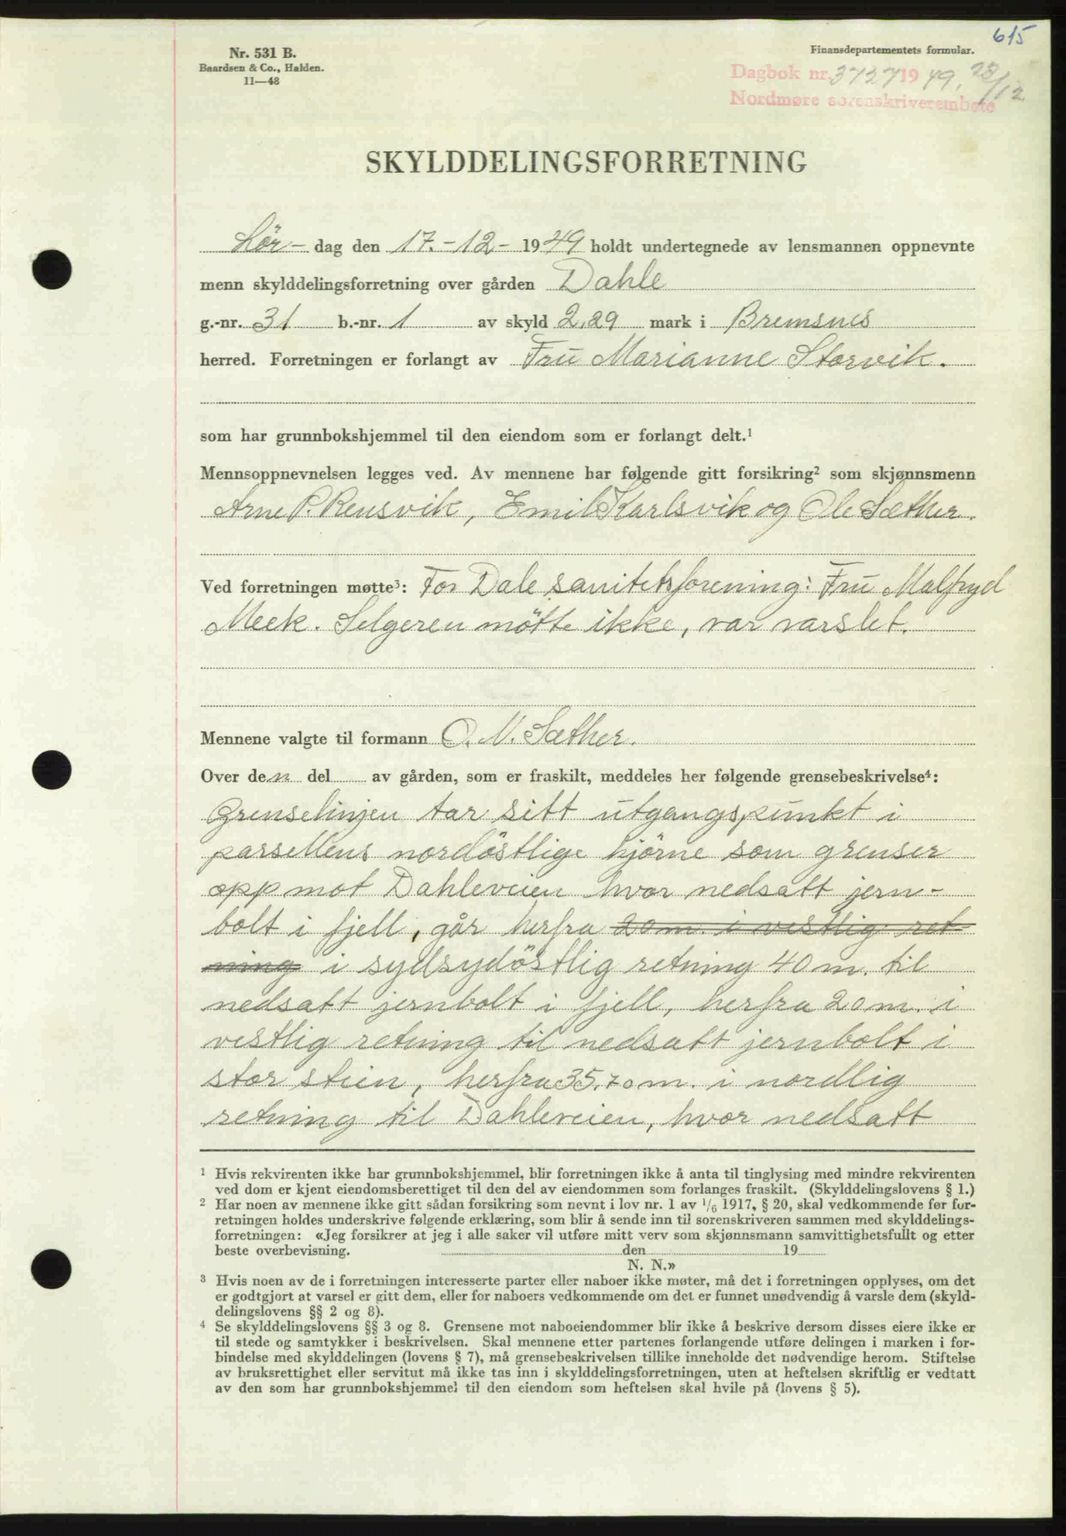 615
Nr. 531 B.
Baardsen & Co., Halden.
11—48
Finansdepartementets formular.
Dagbok nr. 3727 1949, 23/12
Nordmøre sorenskriverembete
SKYLDDELINGSFORRETNING
Lör- dag den 17.-12- 1949 holdt undertegnede av lensmannen oppnevnte
menn skylddelingsforretning over gården Dahle
g.-nr. 31 b.-nr. 1 av skyld 2,29 mark i Bremsnes
herred. Forretningen er forlangt av Fru Marianne Storvik.
som har grunnbokshjemmel til den eiendom som er forlangt delt.¹
Mennsoppnevnelsen legges ved. Av mennene har følgende gitt forsikring² som skjønnsmenn
Arne P. Rensvik, Emil Karlsvik og Ole Sæther.
Ved forretningen møtte³: For Dale sanitetsforening: Fru Malfryd
Meek. Selgeren mötte ikke, var varslet.
Mennene valgte til formann O. N. Sæther.
Over den del av gården, som er fraskilt, meddeles her følgende grensebeskrivelse⁴:
Grenselinjen tar sitt utgangspunkt i
parsellens nordöstlige hjörne som grenser
opp mot Dahleveien hvor nedsatt jern-
bolt i fjell, går herfra 20 m. i vestlig ret-
ning i sydsydöstlig retning 40 m. til
nedsatt jernbolt i fjell, herfra 20 m. i
vestlig retning til nedsatt jernbolt i
stor stein, herfra 35,70 m. i nordlig
retning til Dahleveien, hvor nedsatt
¹ Hvis rekvirenten ikke har grunnbokshjemmel, blir forretningen ikke å anta til tinglysing med mindre rekvirenten
ved dom er kjent eiendomsberettiget til den del av eiendommen som forlanges fraskilt. (Skylddelingslovens § 1.)
² Har noen av mennene ikke gitt sådan forsikring som nevnt i lov nr. 1 av 1/6 1917, § 20, skal vedkommende før for-
retningen holdes underskrive følgende erklæring, som blir å sende inn til sorenskriveren sammen med skylddelings-
forretningen: «Jeg forsikrer at jeg i alle saker vil utføre mitt verv som skjønnsmann samvittighetsfullt og etter
beste overbevisning. den 19
N. N.»
³ Hvis noen av de i forretningen interesserte parter eller naboer ikke møter, må det i forretningen opplyses, om det
er godtgjort at varsel er gitt dem, eller for naboers vedkommende om det er funnet unødvendig å varsle dem (skyld-
delingslovens §§ 2 og 8).
⁴ Se skylddelingslovens §§ 3 og 8. Grensene mot naboeiendommer blir ikke å beskrive dersom disses eiere ikke er
til stede og samtykker i beskrivelsen. Skal mennene etter partenes forlangende utføre delingen i marken i for-
bindelse med skylddelingen (lovens § 7), må grensebeskrivelsen tillike inneholde det nødvendige herom. Stiftelse
av bruksrettighet eller servitut må ikke tas inn i skylddelingsforretningen, uten at heftelsen skriftlig er vedtatt
av den som har grunnbokshjemmel til den eiendom som heftelsen skal hvile på (lovens § 5).